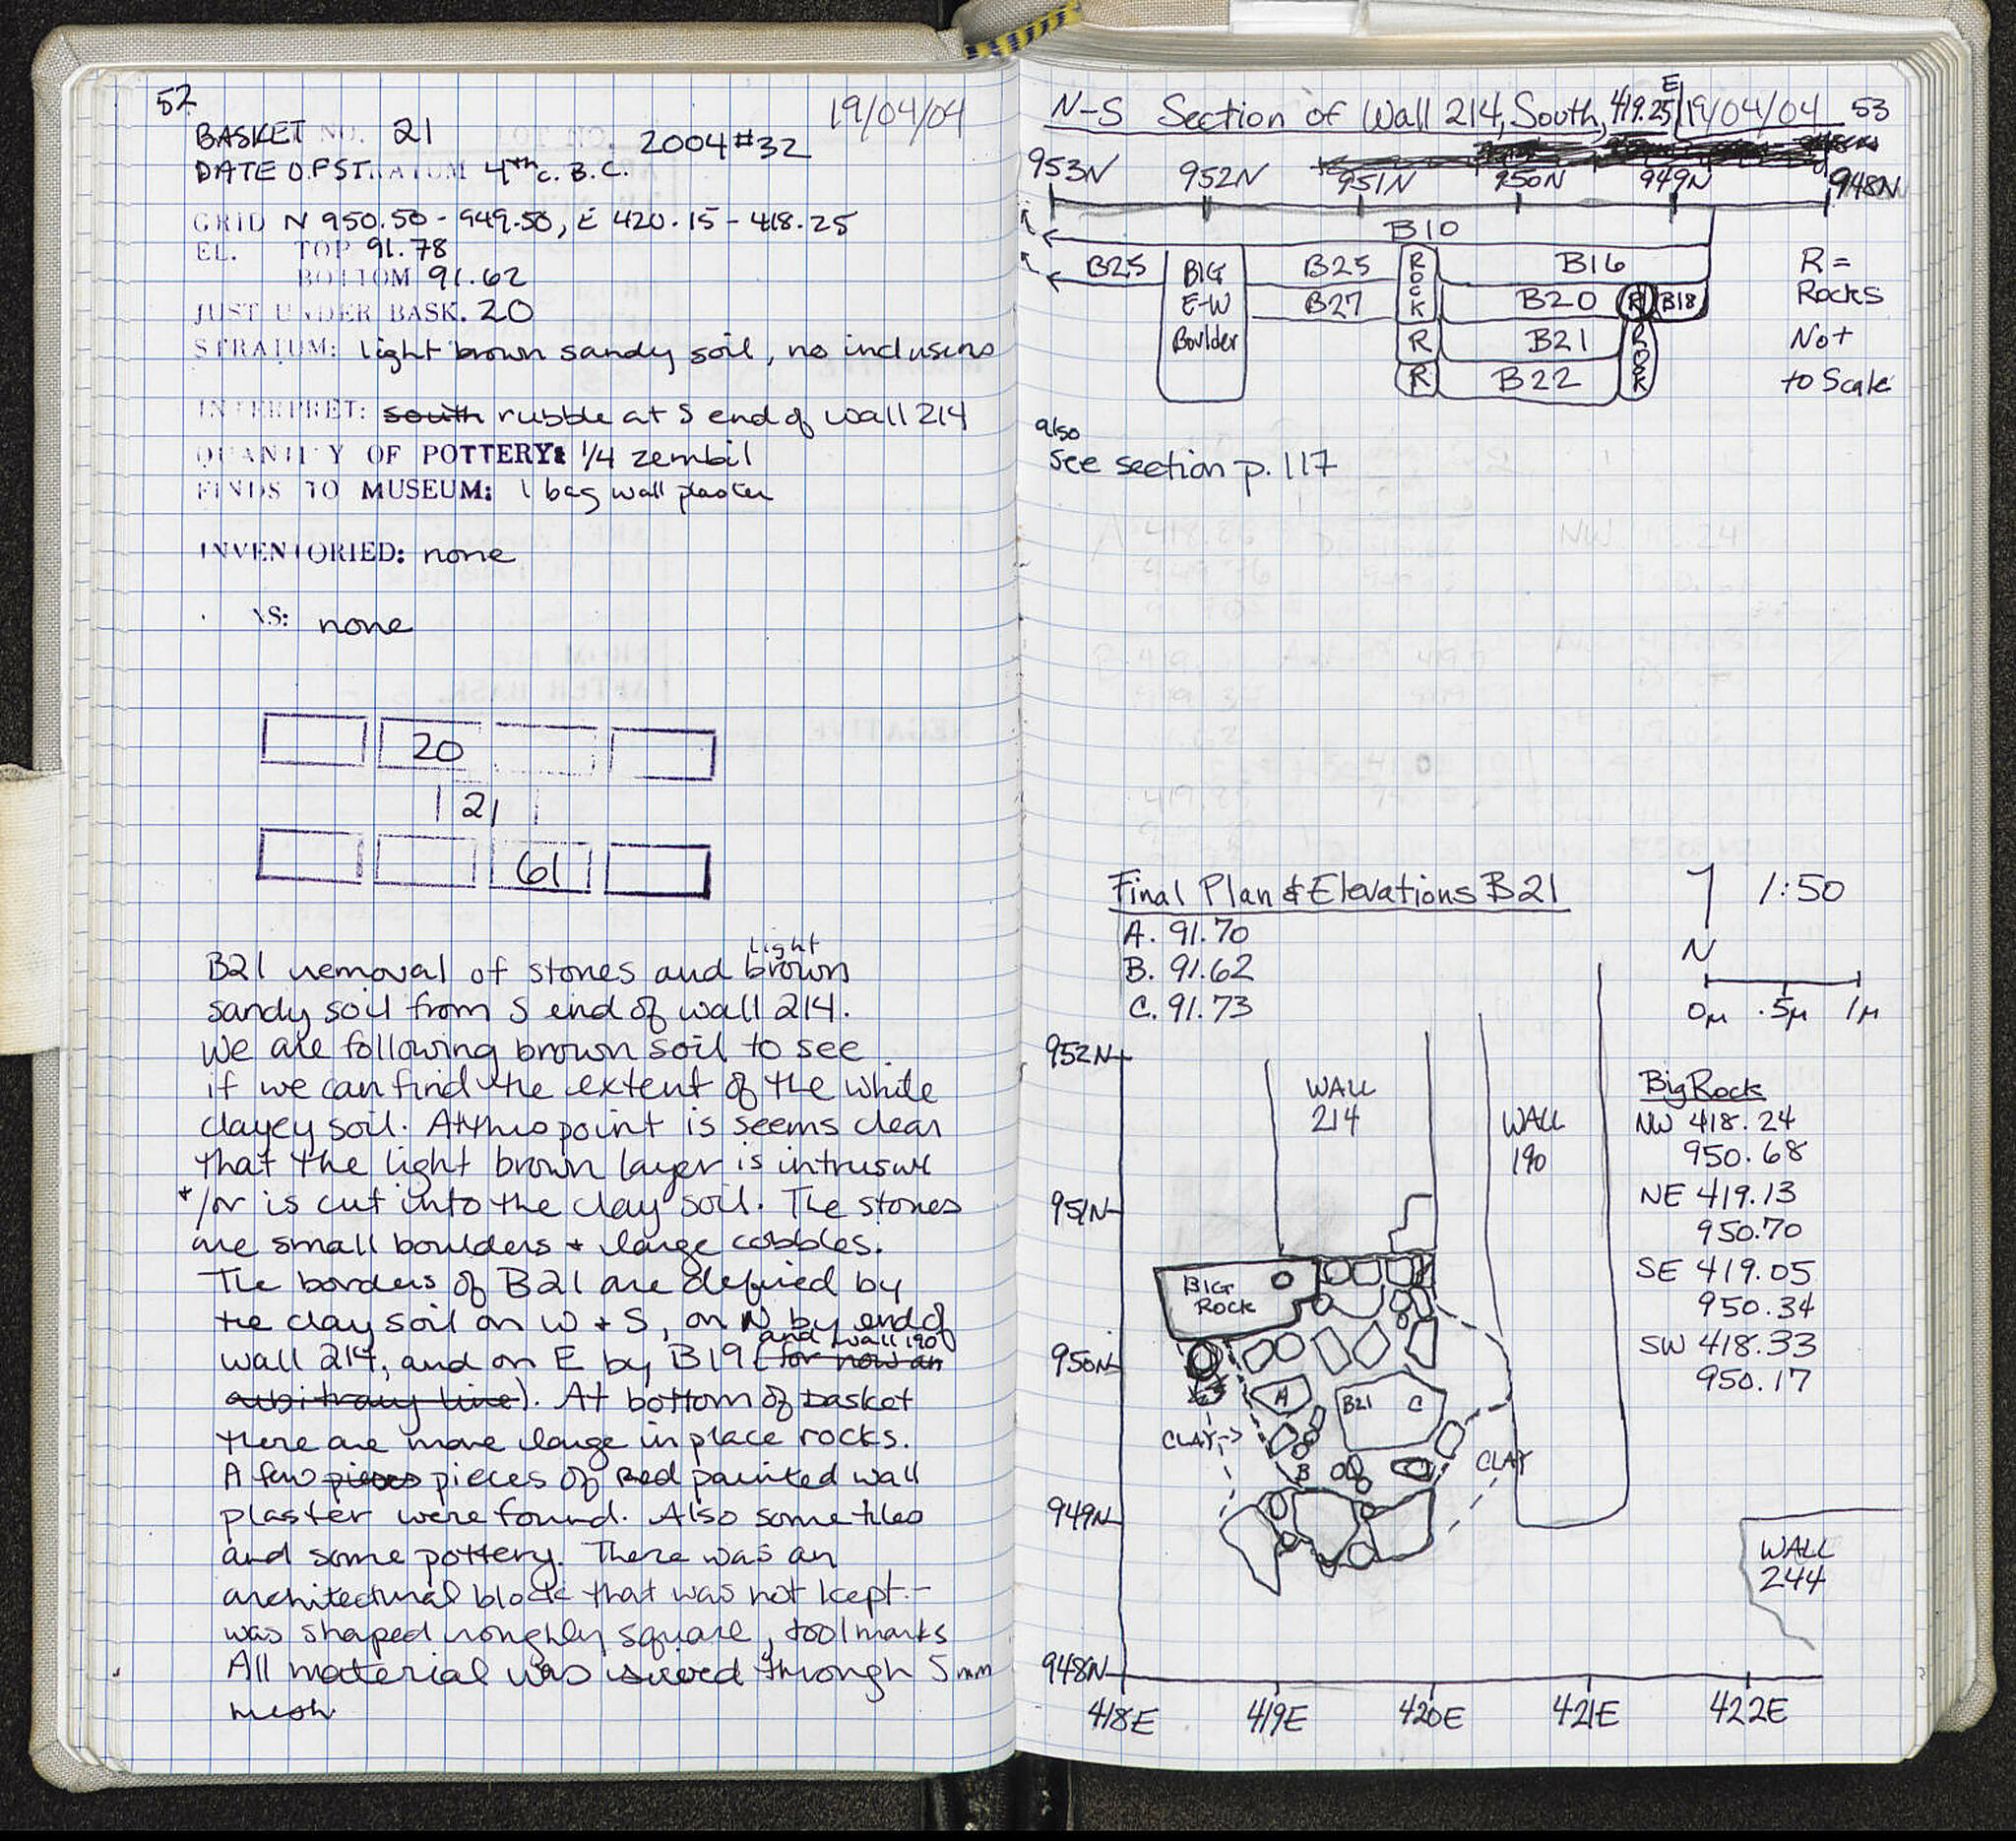 52
19/04/04
BASKET NO. 21 2004#32
DATE OF STRATUM 4th c. B.C.
GRID N 950.50 - 949.50, E 420.15 - 418.25
EL. TOP 91.78
BOTTOM 91.62
JUST UNDER BASK. 20
STRATUM: light brown sandy soil, no inclusions
INTERPRET: south rubble at S end of wall 214
QUANTITY OF POTTERY: 1/4 zembil
FINDS TO MUSEUM: 1 bag wall plaster
INVENTORIED: none
NS: none
20
21
61
B21 removal of stones and light brown
sandy soil from S end of wall 214.
We are following brown soil to see
if we can find the extent of the white
clayey soil. At this point is seems clear
that the light brown layer is intrusive
+/or is cut into the clay soil. The stones
are small boulders + large cobbles.
The borders of B21 are defined by
the clay soil on W + S, on N by end of
wall 214, and on E by B19 and wall 190 (for now an
arbitrary line). At bottom of basket
there are more large in place rocks.
A few pieces pieces of Red painted wall
plaster were found. Also some tiles
and some pottery. There was an
architectural block that was not kept -
was shaped roughly square, toolmarks
All material was sieved through 5mm
mesh
N-S Section of Wall 214, South, 419.25E 19/04/04 53
953N 952N 951N 950N 949N 948N
B10
B25 BIG B25 ROCK B16 R =
E-W B27 B20 R B18 Rocks
Boulder R B21 ROCK Not
R B22 to Scale
also
see section p. 117
Final Plan & Elevations B21 1:50
A. 91.70
B. 91.62 N
C. 91.73 0M .5M 1M
952N
WALL
214
WALL
190
Big Rock
NW 418.24
950.68
NE 419.13
950.70
SE 419.05
950.34
SW 418.33
950.17
951N
BIG
ROCK
950N
A B21 C
CLAY
B
CLAY
949N
WALL
244
948N
418E 419E 420E 421E 422E